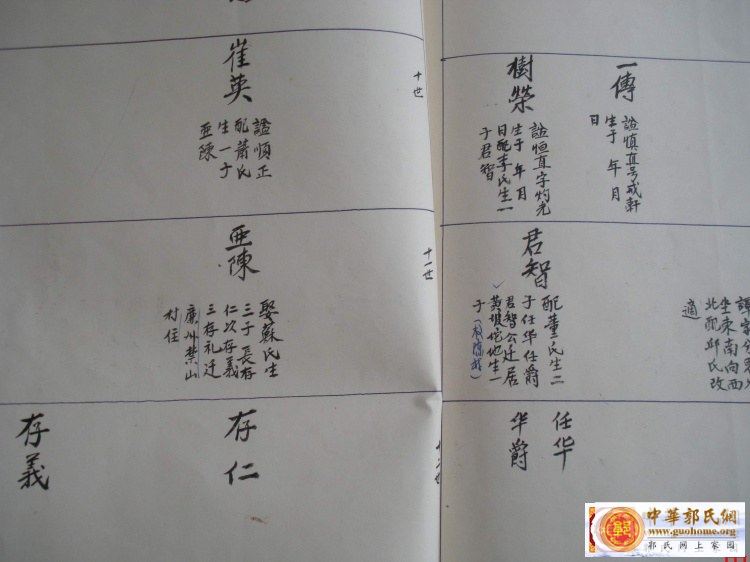 一傳
諡慎直号戒軒
生于 年 月
日
樹榮
諡恒直字灼光
生于 年 月
日配李氏生一
子君智
十世
崔英
諡順正
配蕭氏
生一子
亜陳
坐東南向西
北配邱氏改
適
君智
配董氏生二
子任华任爵
君智公迁居
黄坡坨地生一
子
十一世
亜陳
娶蘇氏生
三子長存
仁次存義
三存礼迁
廉州禁山
村住
任华
华爵
十二世
存仁
存義
中華郭氏網
www.guohome.org
郭氏网上家园